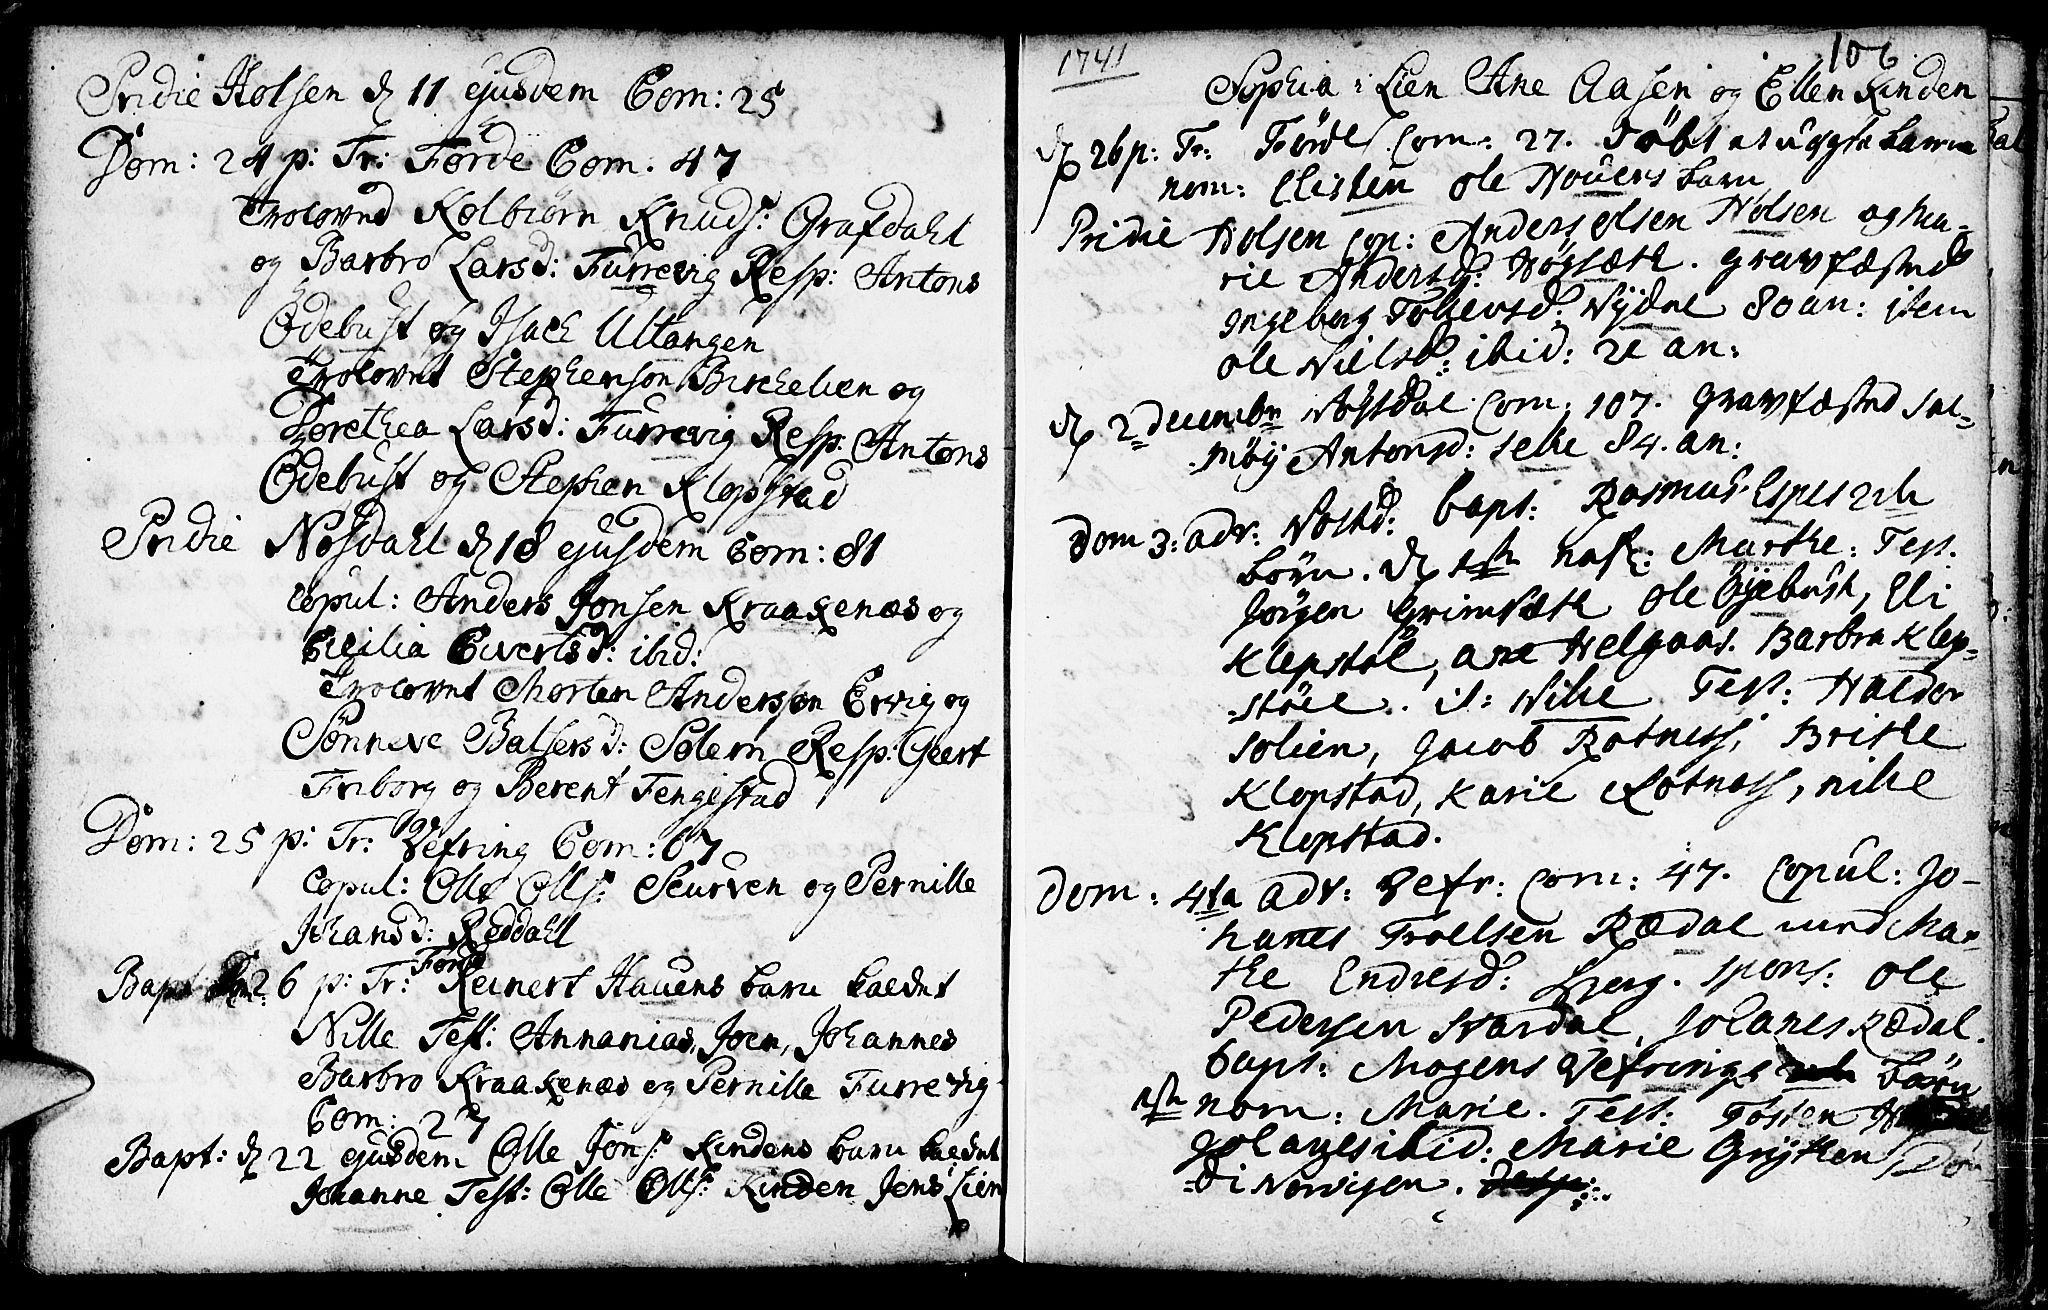 Pridie Holsen d 11 ejusdem Com: 25
Dom: 24 p: Tr: Førde Com. 47
Trolovnd Kolbiørn Knuds: Grafdahl
og Barbro Larsd: Furrevig Resp: Antons
Ødebust og Isach Ultangen
Trolovnt Stephenson Birchelien og
Dorethea Larsd: Furrevig Resp: Antons
Ødebust og Stephen Klopstad
Pridie Nosdahl d 18 ejusdem Com: 81
Copul: Anders Jonsen Kraakenæs og
Cecilia Evertsd: ibid:
Trolovnt Morten Andersson Ervig og
Sønneve Balsersd: Solem Resp: Geert
Friborg og Berent Tengestad
Dom: 25 p: Tr: Vefring Com: 67
Copul: Olle Olls: Scurven og Pernille
Johansd: Reddahl
Førde
Bapt: Dom 26 p: Tr: Reinert Hauens barn kaldet
Nille Test: Annanias, Joen, Johannes
Barbro Kraakenæs og Pernille Furrevig
Com: 27
Bapt: d 22 ejusdem Olle Jons: Kindens barn kaldet
Johanne Test: Olle Olls: Kinden Jens Lien
1741
106
Sophia Lien Ane Aasen og Ellen Kinden
d 26 p: Tr: Førde Com: 27. Døbt et barn
nom: Ole Houens barn
Pridie Holsen cop: Anders Olsen Holsen og Ma-
rie Andersd: Høysæth. gravfæsted
Ingeborg Tollevsd: Nydal 80 an: item
Ole Nielss: ibid: 21 an:
d 2 Decembr Nosdal Com: 107. gravfæsted Sal-
møy Antonsd: 84. an:
Dom 3: adv: Nosd: bapt: Rasmus Espesæth
børn. d nafn: Marthe: Test.
Jørgen Grimsæth Ole Øyebust, Eli
Klepstøl, Ane Helgaas. Barbra Klep-
støel. it: Nille Test: Haldor
Solien, Jacob Rotness, Brithe
Klopstad, Karie Rotness, Nille
Klopstad.
Dom: 4ta adv: Vefr: Com: 47. Copul: Jo-
hanes Troelsen Rædal med Mar-
the Endresd: Berg. spons: Ole
Pedersen Hardal, Johanes Rædal.
bapt: Mogens Vefrings barn
nom: Marie. Test: Tosten
Johanes ibid: Marie Gryten, Dor-
di Norvigen.